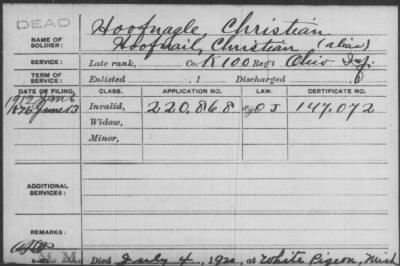 DEAD
NAME OF SOLDIER: Hoofnagle, Christian
Hoofnail, Christian (alias)
SERVICE: Late rank, Co. K 100 Reg't Ohio Inf.
TERM OF SERVICE: Enlisted , 1 Discharged , 0
DATE OF FILING. CLASS. APPLICATION NO. LAW. CERTIFICATE NO.
1912 Jan 6
1876 June 13 Invalid, 220.868 J 147.072
Widow,
Minor,
ADDITIONAL SERVICES:
REMARKS:
Died July 4, 1920, at White Pigeon, Mich